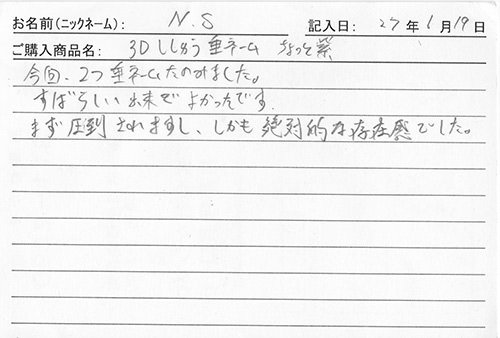 お名前(ニックネーム): N.S 記入日: 27年1月19日
ご購入商品名: 3Dししゅう重ネーム ちょっと紫
今回、2つ重ネームたのみました。
すばらしい出来でよかったです
まず圧倒されますし、しかも絶対的な存在感でした。